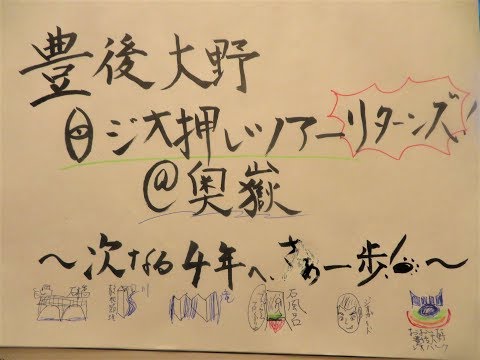 豊後大野
ジオ押しツアーリターンズ!
@奥嶽
~次なる4年へ、さあ一歩!~
石風呂